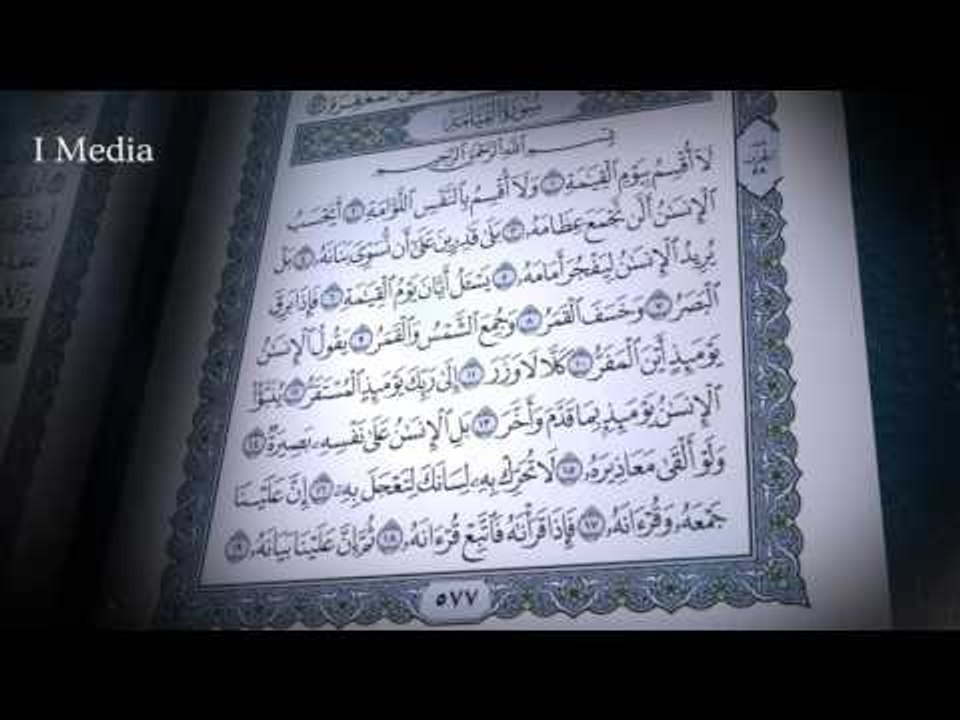 I Media
المغفرة
سورة القيامة
بسم الله الرحمن الرحيم
لَآ أُقْسِمُ بِيَوْمِ ٱلْقِيَٰمَةِ ١ وَلَآ أُقْسِمُ بِٱلنَّفْسِ ٱللَّوَّامَةِ ٢ أَيَحْسَبُ
ٱلْإِنسَٰنُ أَلَّن نَّجْمَعَ عِظَامَهُۥ ٣ بَلَىٰ قَٰدِرِينَ عَلَىٰٓ أَن نُّسَوِّىَ بَنَانَهُۥ ٤ بَلْ
يُرِيدُ ٱلْإِنسَٰنُ لِيَفْجُرَ أَمَامَهُۥ ٥ يَسْـَٔلُ أَيَّانَ يَوْمُ ٱلْقِيَٰمَةِ ٦ فَإِذَا بَرِقَ
ٱلْبَصَرُ ٧ وَخَسَفَ ٱلْقَمَرُ ٨ وَجُمِعَ ٱلشَّمْسُ وَٱلْقَمَرُ ٩ يَقُولُ ٱلْإِنسَٰنُ
يَوْمَئِذٍ أَيْنَ ٱلْمَفَرُّ ١٠ كَلَّا لَا وَزَرَ ١١ إِلَىٰ رَبِّكَ يَوْمَئِذٍ ٱلْمُسْتَقَرُّ ١٢ يُنَبَّؤُا۟
ٱلْإِنسَٰنُ يَوْمَئِذٍۭ بِمَا قَدَّمَ وَأَخَّرَ ١٣ بَلِ ٱلْإِنسَٰنُ عَلَىٰ نَفْسِهِۦ بَصِيرَةٌ ١٤
وَلَوْ أَلْقَىٰ مَعَاذِيرَهُۥ ١٥ لَا تُحَرِّكْ بِهِۦ لِسَانَكَ لِتَعْجَلَ بِهِۦٓ ١٦ إِنَّ عَلَيْنَا
جَمْعَهُۥ وَقُرْءَانَهُۥ ١٧ فَإِذَا قَرَأْنَٰهُ فَٱتَّبِعْ قُرْءَانَهُۥ ١٨ ثُمَّ إِنَّ عَلَيْنَا بَيَانَهُۥ ١٩
٥٧٧